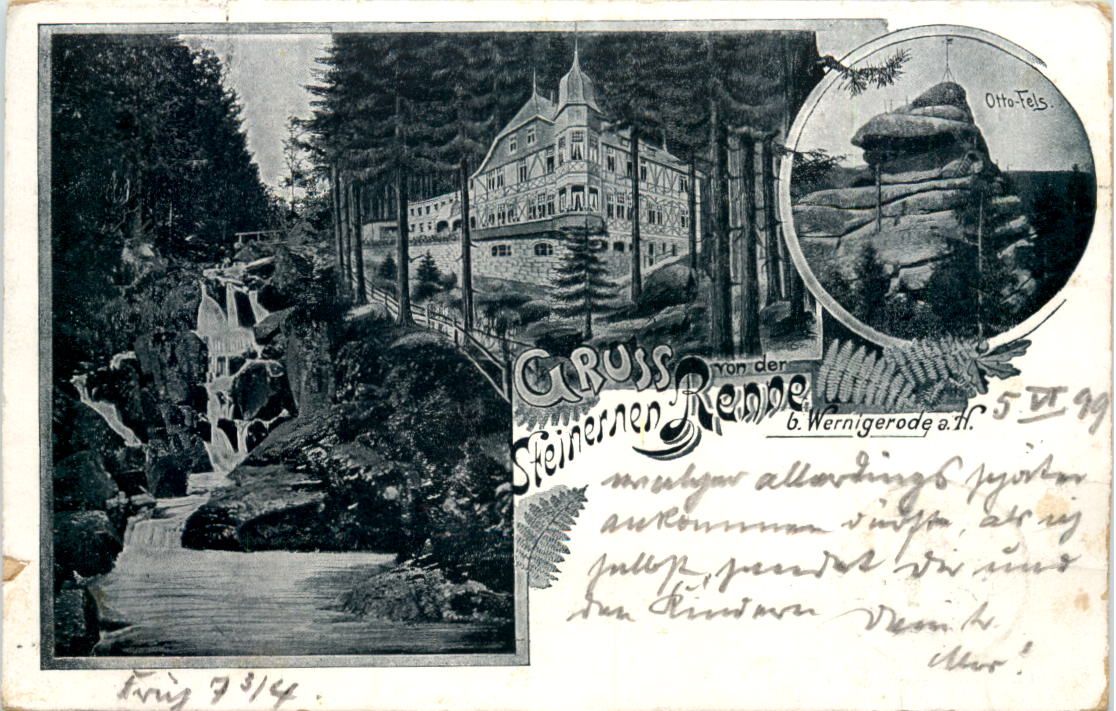 Otto-Fels.
GRUSS von der
Steinernen Renne
b. Wernigerode a. H.
5 VI 99
welcher allerdings später
ankommen dürfte, als ich
selbst, sendet Dir und
den Kindern Dein tr.
Früh 7 3/4.